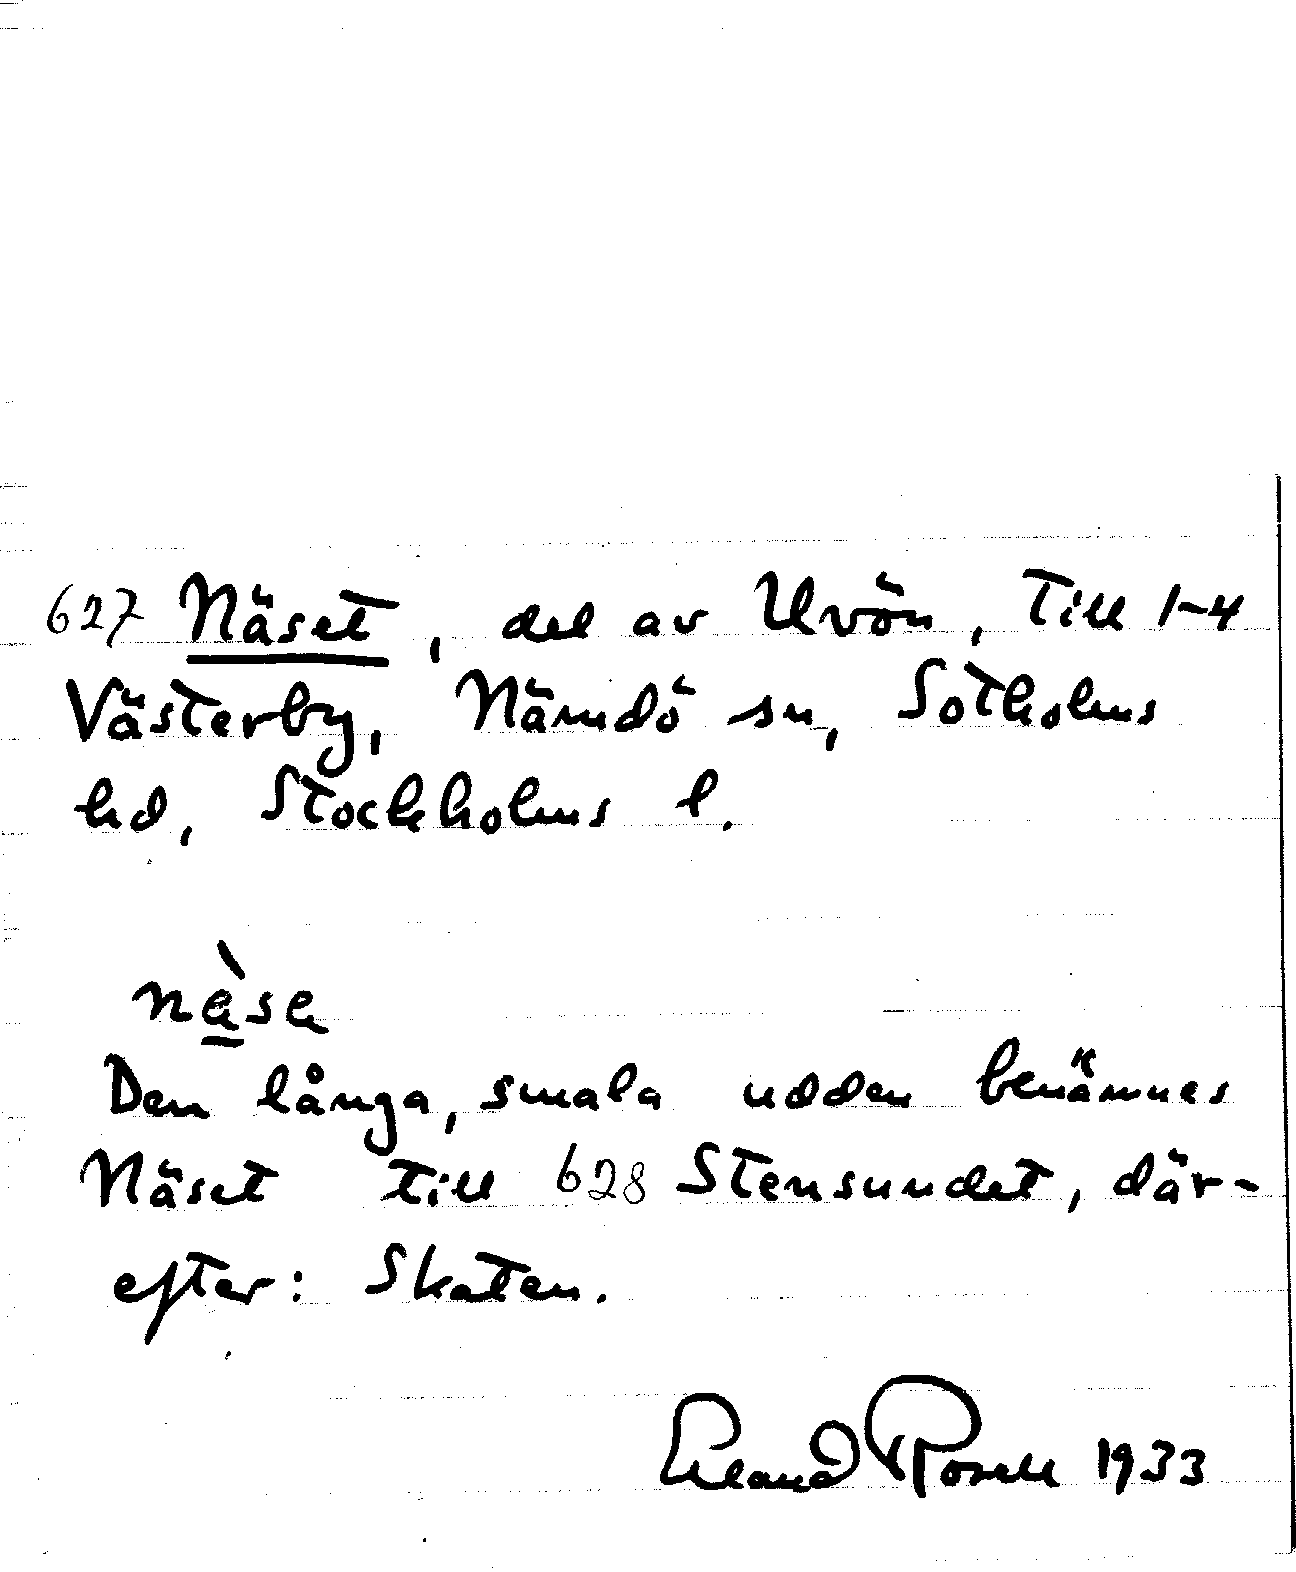 627 Näset, del av Uvön, till 1-4
Västerby, Nämdö sn, Sotholms
hd, Stockholms l.
nä̀sa
Den långa, smala udden benämnes
Näset till 628 Stensundet, där-
efter: Skaten.
Erland Rosell 1933